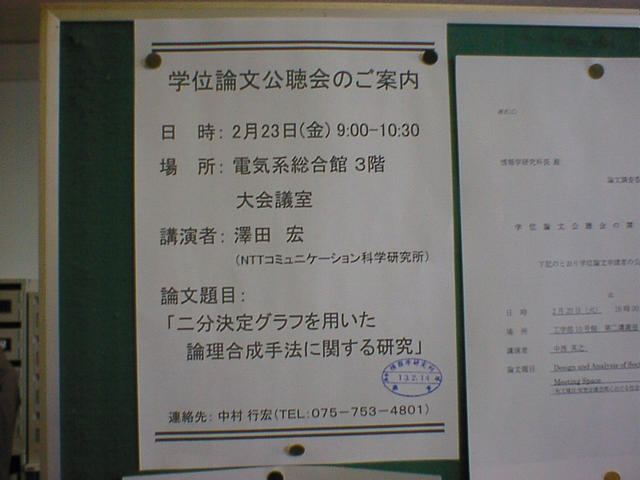 学位論文公聴会のご案内
日　時： 2月23日(金) 9:00-10:30
場　所： 電気系総合館 3階
大会議室
講演者： 澤田　宏
(NTTコミュニケーション科学研究所)
論文題目：
「二分決定グラフを用いた
論理合成手法に関する研究」
13.2.14
連絡先： 中村 行宏(TEL:075-753-4801)
情報学研究科長 殿
論文調査委
学 位 論 文 公 聴 会 の 開
下記のとおり学位論文申請者の公
日　時　2月20日(火)
場　所　工学部10号館 第二講義室
講演者
論文題目　Design and Analysis of Soci
Meeting Space